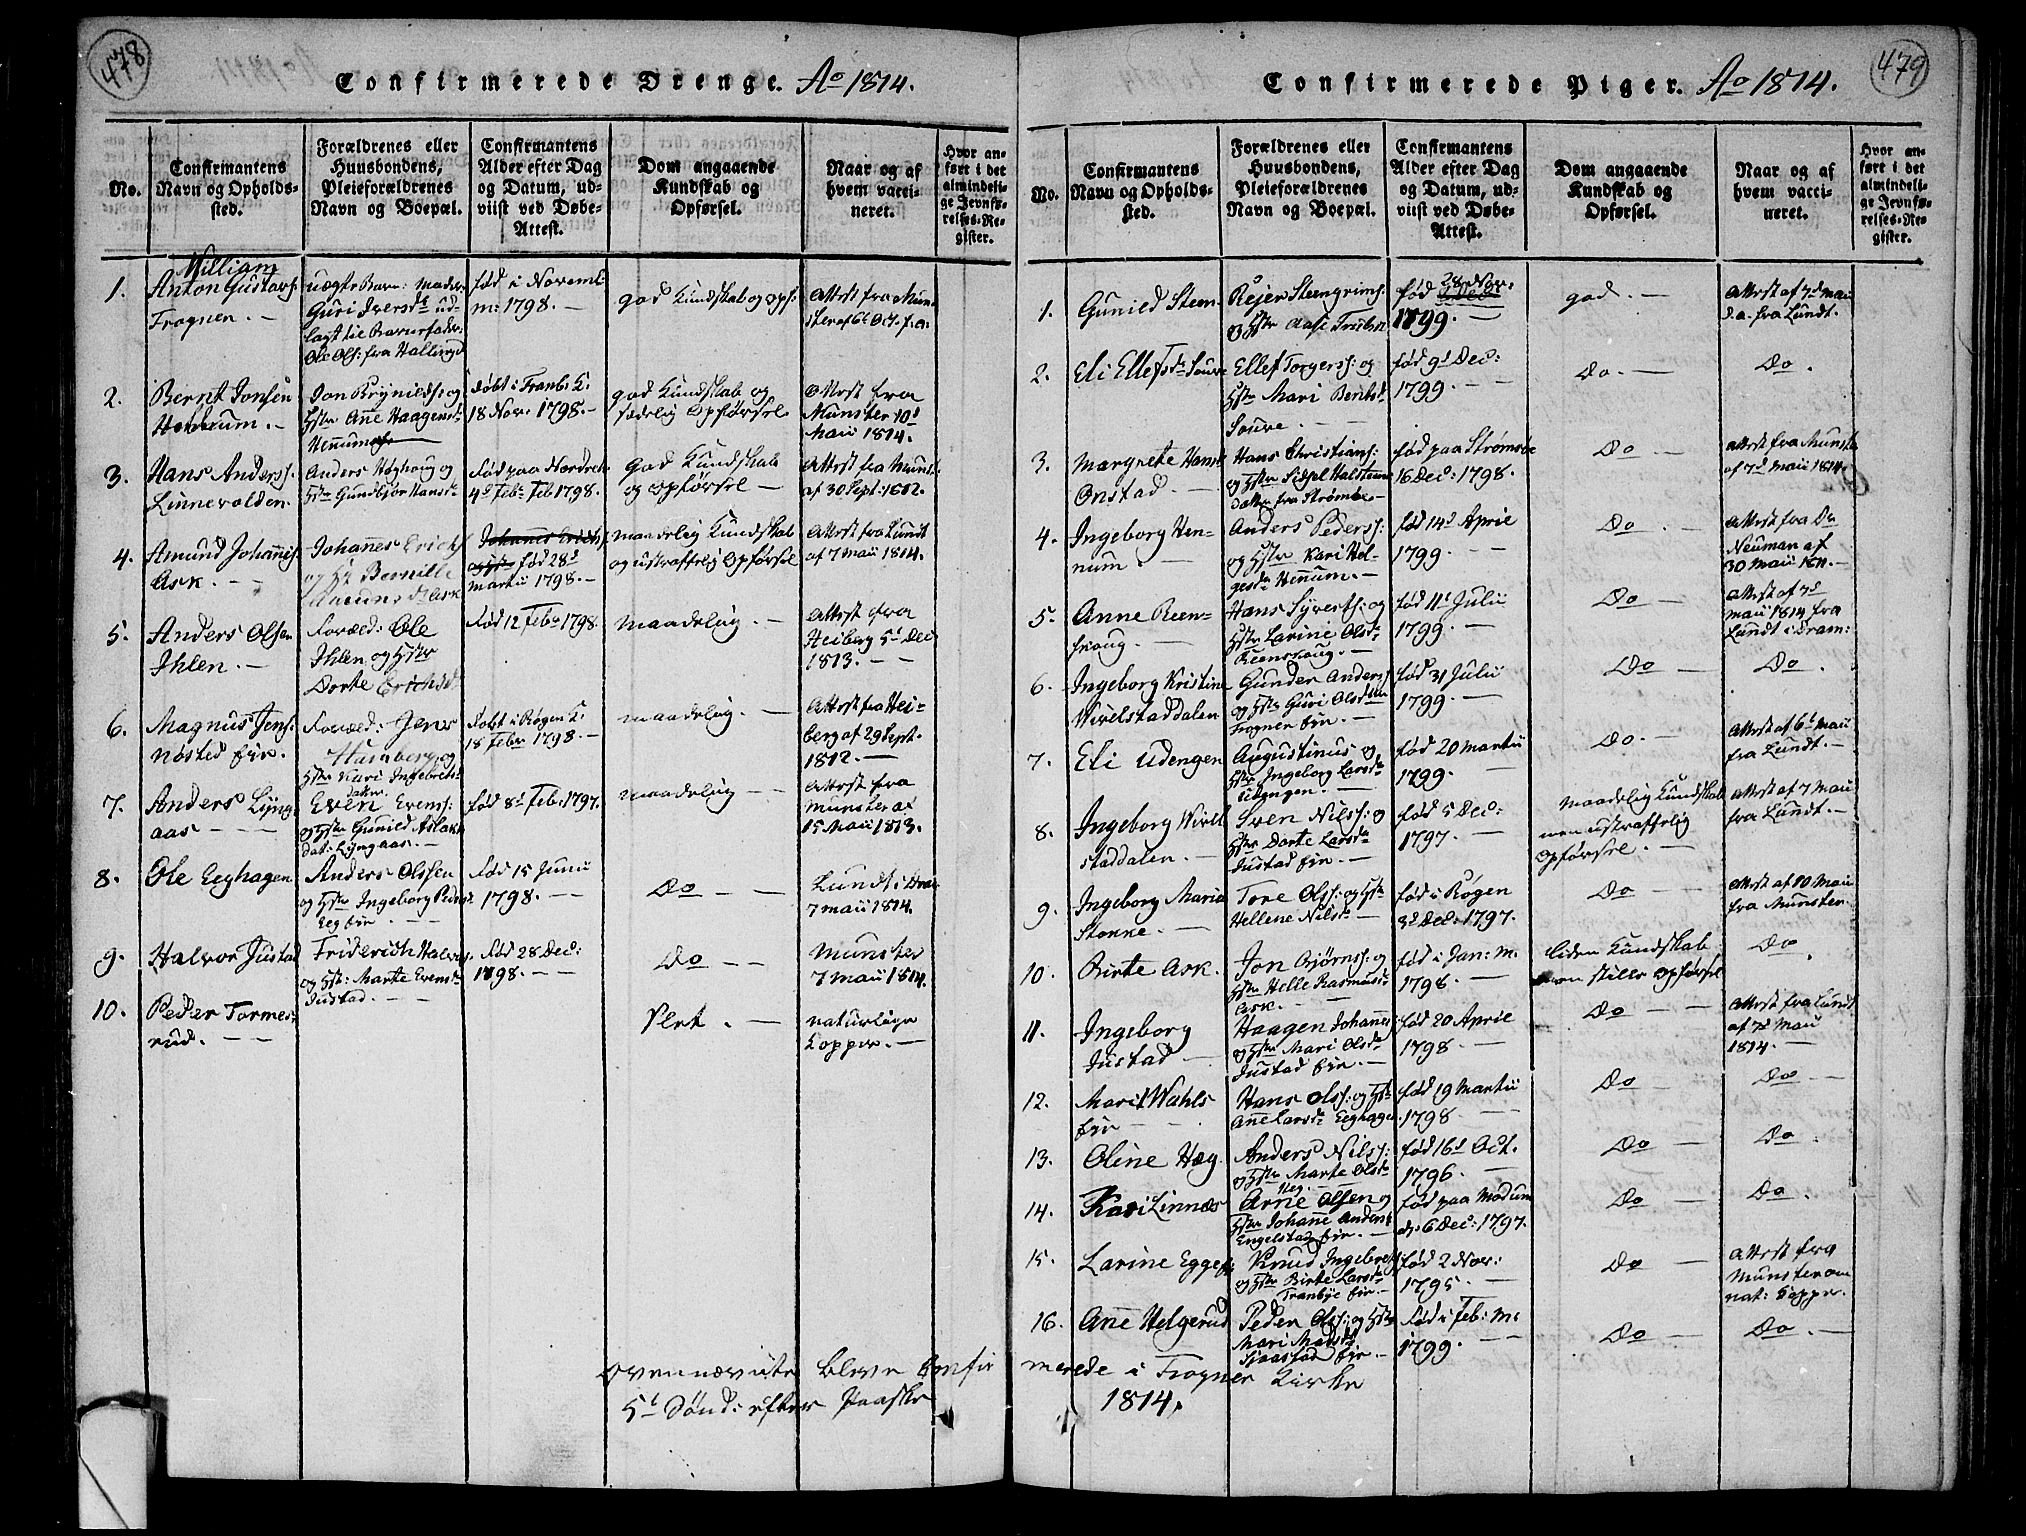 478
Confirmerede Drenge. Ao 1814.
No.
Confirmantens
Navn og Opholds-
sted.
Forældrenes eller
Huusbondens,
Pleieforældrenes
Navn og Boepæl.
Confirmantens
Alder efter Dag
og Datum, ud-
viist ved Døbe-
Attest.
Dom angaaende
Kundskab og
Opførsel.
Naar og af
hvem vacci-
neret.
Hvor an-
ført i det
almindeli-
ge Jevnfø-
relses-Re-
gister.
1.
William
Anton Gustavs:
Frognen. —
uægte Barn: Moder
Guri Iversdr ud-
lagt til Barnefader
Ole Ols: fra Hallingd
fød i Novemb:
m: 1798. —
god Kundskab og opf:
Attest fra Mun-
ster af 6t Oct. f.a.
2.
Bernt Jonsen
Hennum. —
Jon Brynilds: og
Hstr Ane Haagensdr
Hennum
døbt i Franb: K:
18 Nov: 1798. —
god Kundskab og
sædelig Opførsel
Attest fra
Munster 10d
Maii 1814.
3.
Hans Anders:
Linnevolden.
Anders Høghoug og
Hstr Gunbjør Hansdr
Fød paa Nordre
4d Feb: 1798.
God Kundskab
og opførsel —
Attest fra Munst
af 30 Sept: 1812.
4.
Amund Johannis:
Ask. — —
Johannes Erichs
og Hst Bernille
Amunsdr Ask
Johannes Erichs:
og Hstr fød 28d
Martii 1798. —
maadelig Kundskab
og ustraffelig Opførsel
Attest fra Lundt
af 7 Maii 1814.
5.
Anders Olsen
Ihlen. —
Foræld: Ole
Ihlen og Hstr
Dorte Erichsd
Fød 12 Febr 1798.
maadelig. —
Attest fra
Heiberg 5t Dec
1813. — —
6.
Magnus Jens:
Nøsted Eie.
Foræld: Jens
Hamberg og
Hstr Kari Ingebrets
datter.
Døbt i Røgen K:
18 Febr 1798. —
maadelig. —
Attest fra Hei-
berg af 29 Sept.
1812. —
7.
Anders Lyng
aas — —
Even Evens:
og Hstr Gunild Aslaks
dat: Lyngaas. —
fød 8d Feb: 1797.
maadelig —
Attest fra
Munster af
15 Maii 1813.
8.
Ole Eeghagen
Anders Olssen
og Hstr Ingeborg Peders
Eeg Eie —
Fød 15 Junii
1798. —
Do — —
Lundt i Dram
7 Maii 1814.
9.
Halvor Justad
Friderich Halvors:
og Hst: Marte Evensdr
Justad. — —
Fød 28 Dec:
1798. — —
Do — —
Munster
7 Maii 1814.
10.
Peder Tormes-
rud. — —
Slet. —
naturlige
Kopper. —
Ovennævnte bleve Confir
5t Sønd: efter Paaske
479
Confirmerede Piger. Ao 1814.
No.
Confirmantens
Navn og Opholds-
sted.
Forældrenes eller
Huusbondens,
Pleieforældrenes
Navn og Boepæl.
Confirmantens
Alder efter Dag
og Datum, ud-
viist ved Døbe-
Attest.
Dom angaaende
Kundskab og
Opførsel.
Naar og af
hvem vacci-
neret.
Hvor an-
ført i det
almindeli-
ge Jevnfø-
relses-Re-
gister.
1.
Gunild Stem
Rejer Steengrims:
og Hstr Aase
fød 28 Nov:
1799. —
god. —
Attest af 7d Maii
d.a. fra Lundt.
2.
Eli Ellefsdr Souve
Ellef Torgers: og
Hstr Mari Berthsdr
Souve. —
fød 9d Dec:
1799. — —
Do. —
Do.
3.
Margrete Hansdr
Onstad. —
Hans Christians:
og Hstr Sidsel Halstens
datter fra Strømsøe —
fød paa Strømsøe
16 Dec: 1798.
Do —
attest fra Munster
af 7d Maii 1814.
4.
Ingeborg Hen-
num. —
Anders Peders:
og Hstr Kari Hel-
gesdr Hennum. —
fød 14d April
1799. — —
Do. —
Attest fra Dr
Neuman af
30 Maii 1811. —
5.
Anne Reen-
skoug. —
Hans Syverts: og
Hstr Larine Olsdr
Reenskoug. —
fød 11d Julii
1799. —
Do —
Attest af 7d
Maii 1814 fra
Lundt i Dram:
6.
Ingeborg Kristine
Wivelstaddalen
Gunder Anders:
og Hstr Guri Olsdtr
Frogner Eie. —
fød 31 Julii
1799. —
Do —
Do.
7.
Eli Udengen
Augustinus og
Hstr Ingeborg Larsdr
Udengen. —
fød 20 Martii
1799. —
Do. —
Attest af 6t Maii
fra Lundt. —
8.
Ingeborg Wivel
staddalen. —
Sven Nils: og
Hstr Dorte Larsdr
Justad Eie. —
fød 5 Dec:
1797. —
Maadelig Kundskab
men ustraffelig
opførsel. —
Attest af 7 Maii
fra Lundt. —
9.
Ingeborg Maria
Stokke. —
Tore Ols: og Hstr
Hellene Nilsdr —
fød i Røgen
3d Dec: 1797.
Do —
Attest af 10 Maii
fra Munster.
10.
Birte Ask.
Jon Bjørns: og
Hstr Helle Rasmusdr
Ask. —
fød i Jan: M.
1798. —
liden Kundskab
men stille Opførsel
Do.
11.
Ingeborg
Justad —
Haagen Johannes:
og Hstr Mari Olsdr
Justad Eie. —
fød 20 April
1798. —
Do —
Attest fra Lundt
af 7d Maii
1814. —
12.
Marit Wahls
Eie —
Hans Ols: og Hstr
Ane Larsdr Eeghagen
fød 19 Martii
1798 —
Do —
Do —
13.
Oline Hæg
Anders Nils:
og Hstr Marte Olsdr
Heg. —
fød 16d Oct.
1796. —
Do —
Do —
14.
Kari Linnes
Arne Olsen og
Hstr Johane Anders
Engelstad Eie. —
fød paa Modum
d: 6 Dec: 1797.
Do —
Do.
15.
Larine Egge
Knud Ingebret
og Hstr Birte Larsdr
Tranbye Eie. —
fød 2 Nov:
1795. —
Do —
Attest fra
Munster om
nat: Kopper.
16.
Ane Helgerud
Peder Ols: og Hstr
Mari Madsdr
Sjaastad Eie. —
Fød i Feb: M.
1799. — —
Do —
Do. —
merede i Frogner Kirke
1814.